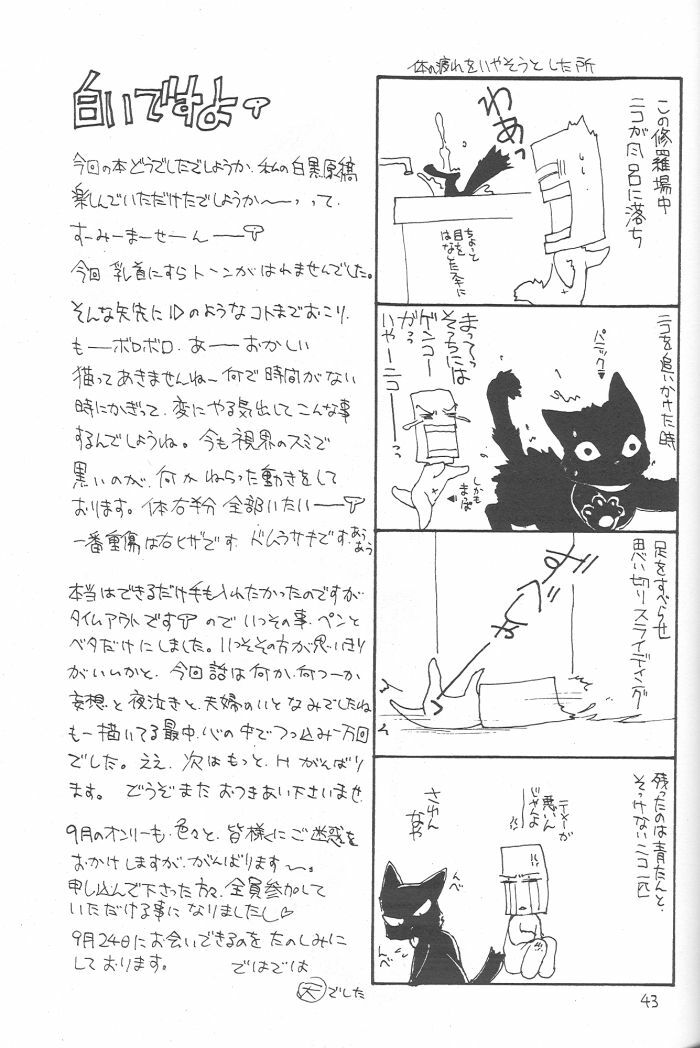 白いですよ
今回の本どうでしたでしょうか、私の白黒原稿
楽しんでいただけたでしょうか〜っって、
すーみーまーせーん
今回 乳首にすらトーンがはれませんでした。
そんな矢先に のようなコトまでおこり、
もーボロボロ、あーおかしい
猫ってあきませんねー何で時間がない
時にかぎって、変にやる気出してこんな事
するんでしょうね。今も視界のスミで
黒いのが、何かねらった動きをして
おります。体右半分 全部いたいー
一番重傷は右ヒザです、ドムラサキです、あうあう
本当はできるだけ手も入れたかったのですが
タイムアウトです ので いっその事、ペンと
ベタだけにしました。いっそその方が思いきり
がいいかと、今回話は何か、何つーか
妄想と夜泣きと、夫婦のいとなみでしたね
もー描いてる最中、心の中でつっ込み一万回
でした。ええ、次はもっと、Hがんばり
ます。 どうぞまた おつきあい下さいませ
9月のオンリーも、色々と、皆様にご迷惑を
おかけしますが、がんばります〜。
申し込んで下さった方々、全員参加して
いただける事になりましたし♡
9月24日にお会いできるのを たのしみに
しております。 ではでは
でした
体の疲れをいやそうとした所
この修羅場中
ニコが風呂に落ち
わあっ
ちょっと
目を
はなしたスキに
ニコを追いかけた時
パニック
まってっ
そっちには
ゲンコー
がっっ
いやーニコーっ
しかも
まっぱ
足をすべらせ
思い切りスライディング
ずべしゃ
残ったのは青たんと、
そっけないニコ一匹
テメーが
悪いん
じゃんよ
さわん
なや
んべ
んべ
43